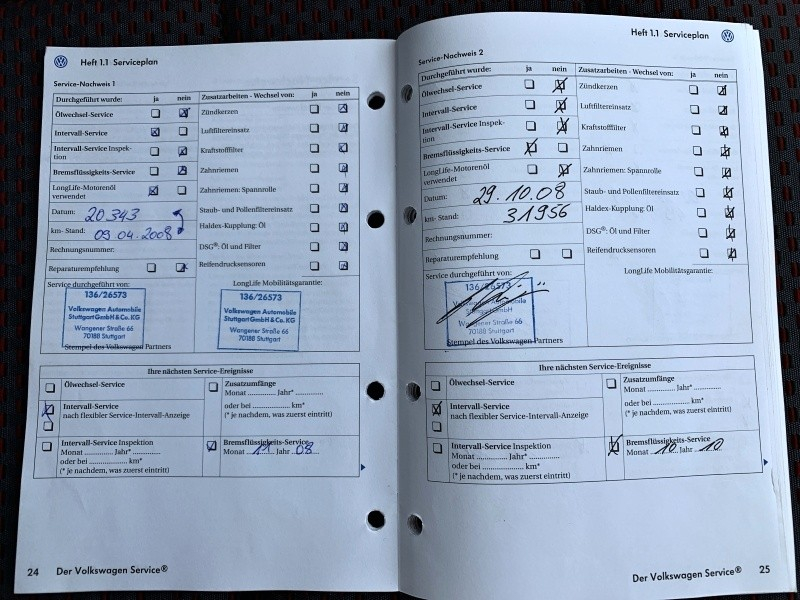 Heft 1.1 Serviceplan
Service-Nachweis 1
Durchgeführt wurde: ja nein
Ölwechsel-Service
Intervall-Service
Intervall-Service Inspek-
tion
Bremsflüssigkeits-Service
LongLife-Motorenöl
verwendet
Datum: 20 343
km- Stand: 09.04.2008
Rechnungsnummer:
Reparaturempfehlung
Service durchgeführt von:
136/26573
Volkswagen Automobile
Stuttgart GmbH & Co. KG
Wangener Straße 66
70188 Stuttgart
Stempel des Volkswagen Partners
Zusatzarbeiten - Wechsel von: ja nein
Zündkerzen
Luftfiltereinsatz
Kraftstofffilter
Zahnriemen
Zahnriemen: Spannrolle
Staub- und Pollenfiltereinsatz
Haldex-Kupplung: Öl
DSG®: Öl und Filter
Reifendrucksensoren
LongLife Mobilitätsgarantie:
136/26573
Volkswagen Automobile
Stuttgart GmbH & Co. KG
Wangener Straße 66
70188 Stuttgart
Ihre nächsten Service-Ereignisse
Ölwechsel-Service
Intervall-Service
nach flexibler Service-Intervall-Anzeige
Intervall-Service Inspektion
Monat ............ Jahr* ............
oder bei ............ km*
(* je nachdem, was zuerst eintritt)
Zusatzumfänge
Monat ............ Jahr* ............
oder bei ............ km*
(* je nachdem, was zuerst eintritt)
Bremsflüssigkeits-Service
Monat 11 Jahr 08
24 Der Volkswagen Service®
Heft 1.1 Serviceplan
Service-Nachweis 2
Durchgeführt wurde: ja nein
Ölwechsel-Service
Intervall-Service
Intervall-Service Inspek-
tion
Bremsflüssigkeits-Service
LongLife-Motorenöl
verwendet
Datum: 29.10.08
km- Stand: 31956
Rechnungsnummer:
Reparaturempfehlung
Service durchgeführt von:
136/26573
Volkswagen Automobile
Stuttgart GmbH
Wangener Straße 66
70188 Stuttgart
Stempel des Volkswagen Partners
Zusatzarbeiten - Wechsel von: ja nein
Zündkerzen
Luftfiltereinsatz
Kraftstofffilter
Zahnriemen
Zahnriemen: Spannrolle
Staub- und Pollenfiltereinsatz
Haldex-Kupplung: Öl
DSG®: Öl und Filter
Reifendrucksensoren
LongLife Mobilitätsgarantie:
Ihre nächsten Service-Ereignisse
Ölwechsel-Service
Intervall-Service
nach flexibler Service-Intervall-Anzeige
Intervall-Service Inspektion
Monat ............ Jahr* ............
oder bei ............ km*
(* je nachdem, was zuerst eintritt)
Zusatzumfänge
Monat ............ Jahr* ............
oder bei ............ km*
(* je nachdem, was zuerst eintritt)
Bremsflüssigkeits-Service
Monat 10 Jahr 10
Der Volkswagen Service® 25